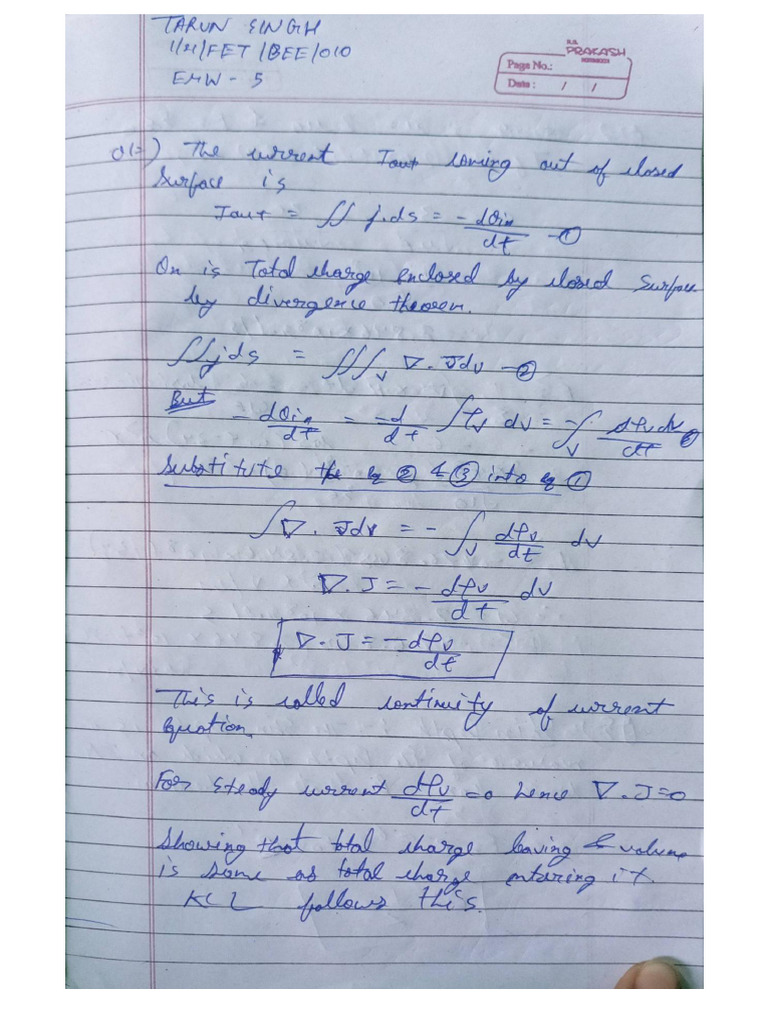 TARUN SINGH
1/21/FET/BEE/010
EMW - 5
R.S.
PRAKASH
Page No.:
Date : / /
The current Iout coming out of closed
surface is
Iout = ∬ j.ds = -dQin/dt -①
Qn is Total charge enclosed by closed surface
by divergence theorem.
∬j ds = ∭v ∇. Jdv -②
But -dQin/dt = -d/dt ∫ρv dv = -∫v dρv dv/dt ③
Substitute the eq ② & ③ into eq ①
∫∇. Jdv = - ∫v dρv/dt dv
∇.J = -dρv/dt dv
∇.J = -dρv/dt
This is called continuity of current
equation.
For steady current dρv/dt =0 hence ∇.J=0
Showing that total charge leaving volume
is same as total charge entering it.
KCL follows this.